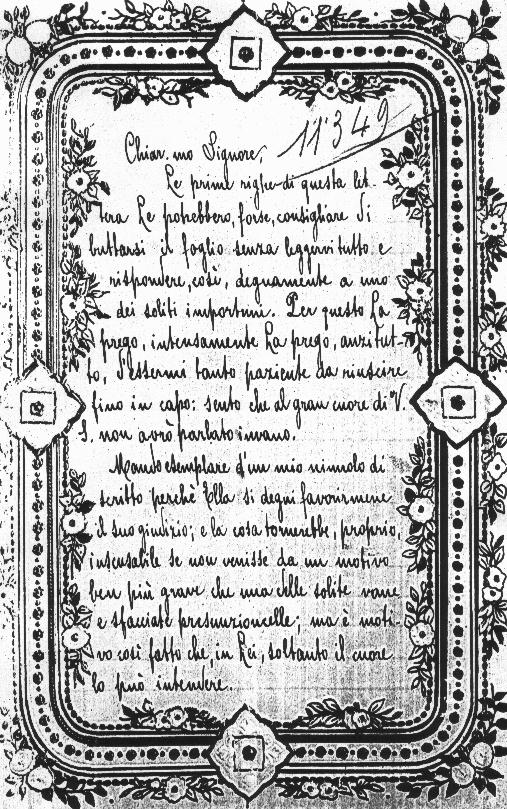 11'349
Chiar.mo Signore,
Le prime righe di questa let-
tera Le potrebbero, forse, consigliare di
buttarsi il foglio senza leggervi tutto e
rispondere, così, degnamente a uno
dei soliti importuni. Per questo La
prego, intensamente La prego, anzitut-
to, d'essermi tanto paziente da riuscire
fino in capo: sento che al gran cuore di V.
S. non avrò parlato invano.
Mando esemplare d'un mio nimolo di
scritto perchè Ella si degni favorirmene
il suo giudizio; e la cosa tornerebbe, proprio,
insensabile se non venisse da un motivo
ben più grave che una delle solite vane
e sfacciate presunzioncelle; ma è moti-
vo così fatto che, in Lei, soltanto il cuore
lo può intendere.